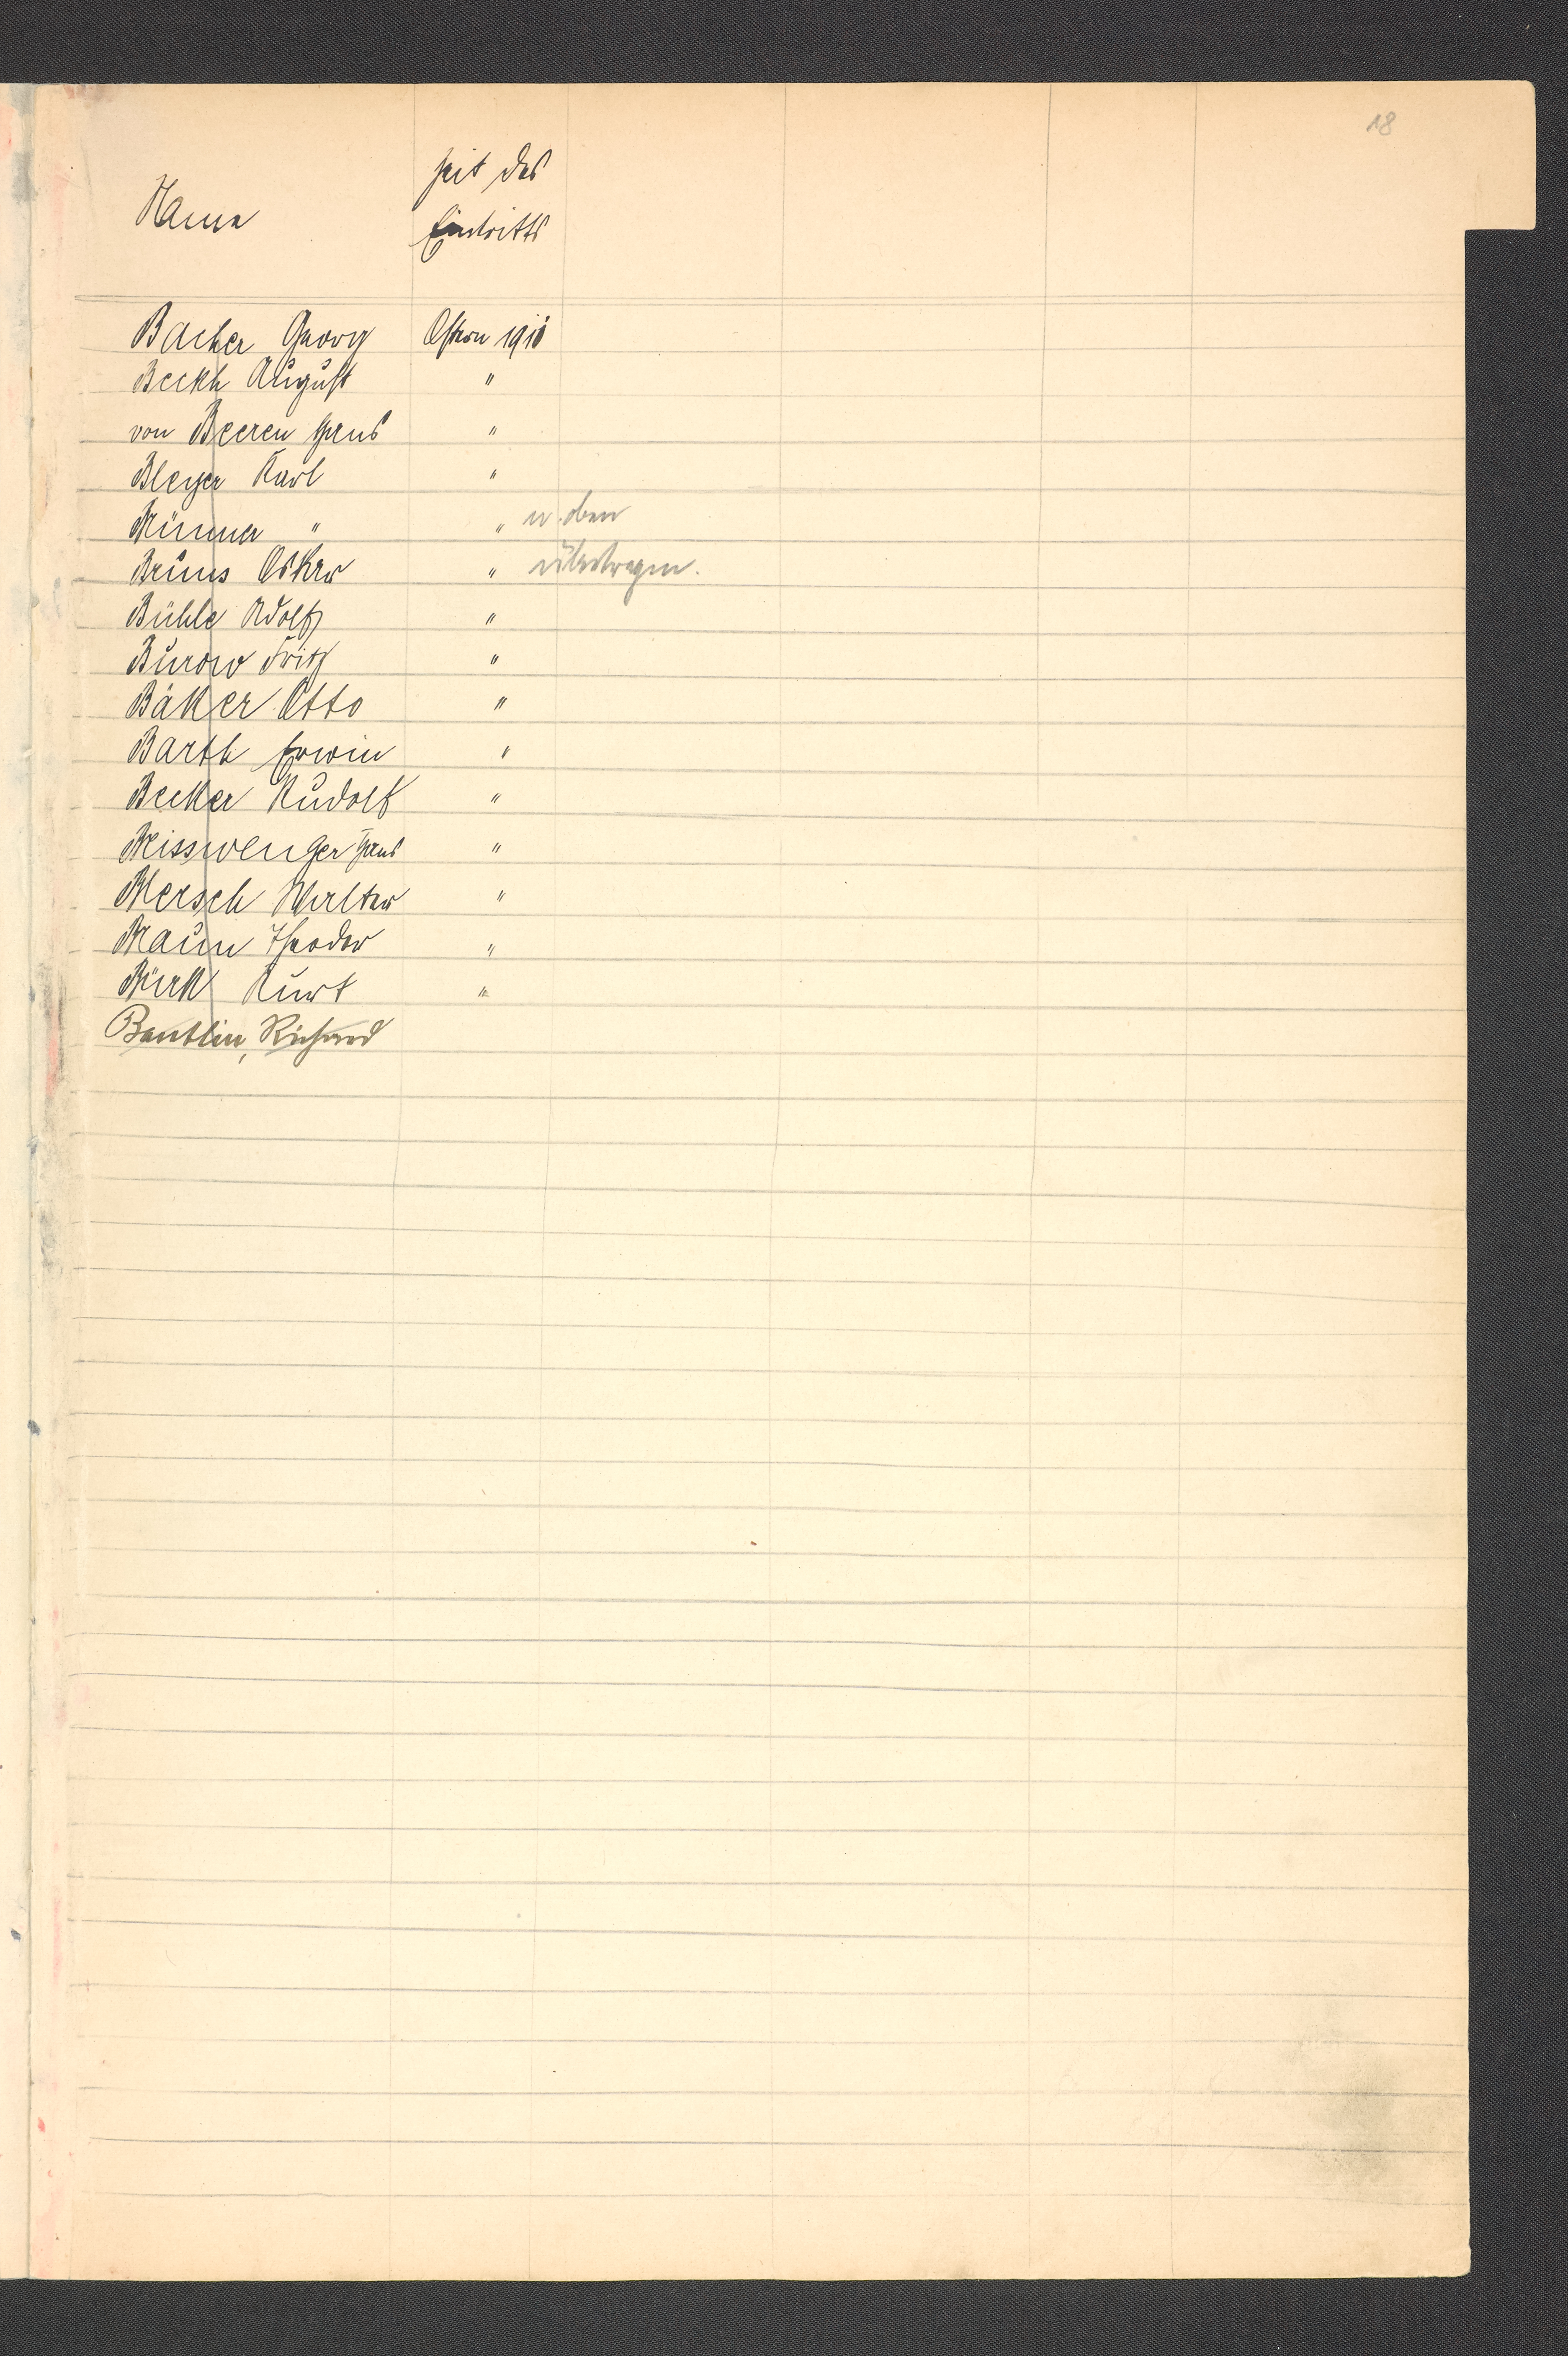 18
Name
Zeit des
Eintritts
Bacher Georg Ostern 1910
Beckh August "
von Beeren Hans "
Bleyer Karl "
" " n. oben
Bruns Oskar " übertragen.
Bühle Adolf "
Burow Fritz "
Bäker Otto "
Barth Erwin "
Becker Rudolf "
Beisswenger Hans "
Blersch Walter "
Braun Theodor "
Bürk Kurt "
Bantlin, Richard